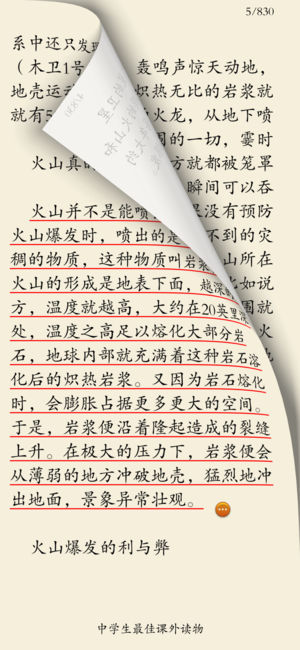 5/830
系中还只发现
（木卫1号 轰鸣声惊天动地，
地壳运 炽热无比的岩浆就
就有5 火龙，从地下喷
围的一切，霎时
火山真的 方就都被笼罩
瞬间可以吞
火山并不是能喷 果没有预防
火山爆发时，喷出的是 不到的灾
稠的物质，这种物质叫岩浆 山所在
火山的形成是地表下面，越深的 比如说
方，温度就越高，大约在20英里深 围就
处，温度之高足以熔化大部分岩 火
石，地球内部就充满着这种岩石溶
化后的炽热岩浆。又因为岩石熔化
时，会膨胀占据更多更大的空间。
于是，岩浆便沿着隆起造成的裂缝
上升。在极大的压力下，岩浆便会
从薄弱的地方冲破地壳，猛烈地冲
出地面，景象异常壮观。
火山爆发的利与弊
中学生最佳课外读物